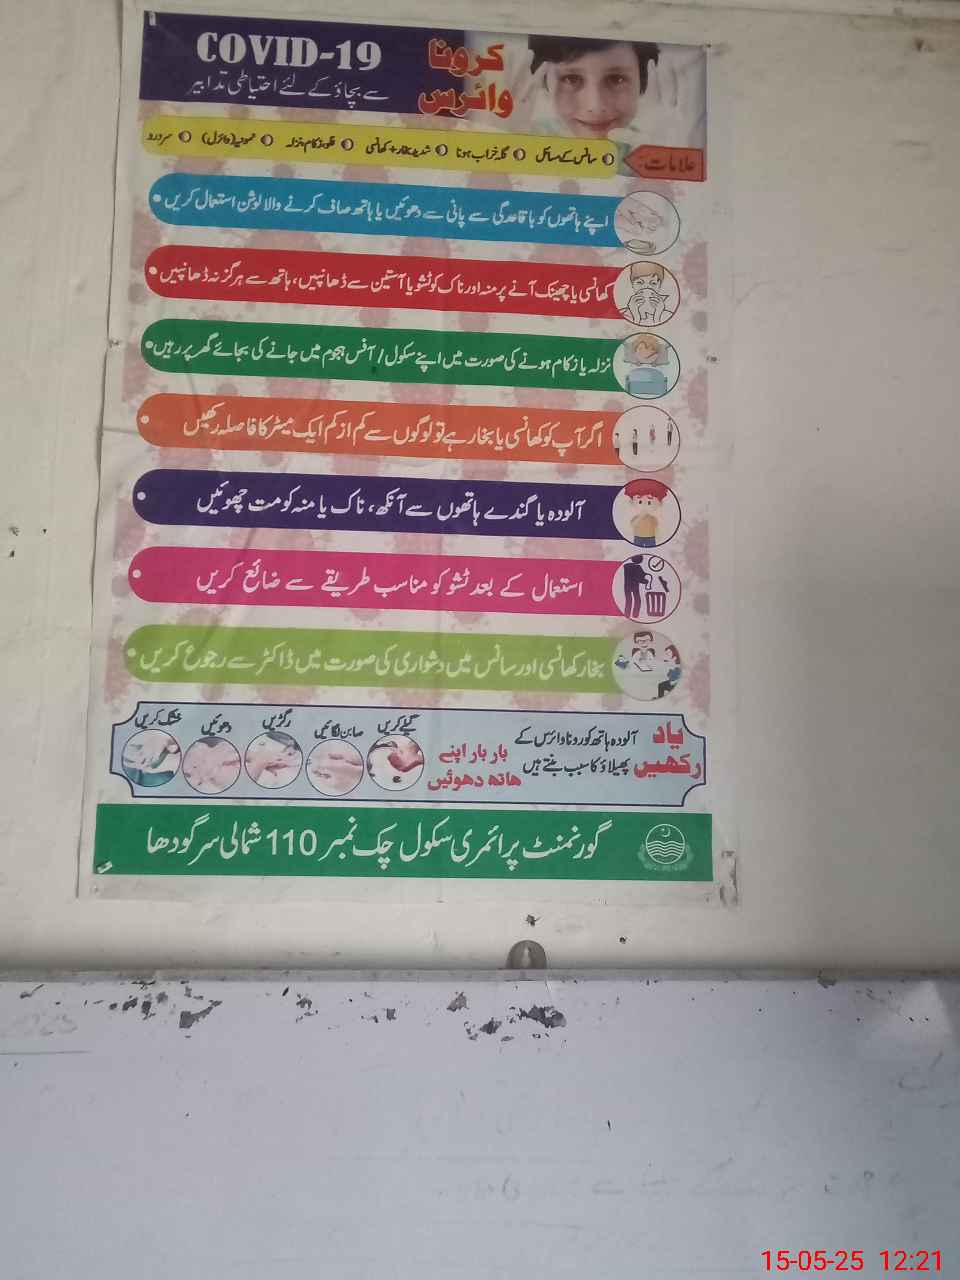 کرونا وائرس COVID-19
سے بچاؤ کے لئے احتیاطی تدابیر
علامات:
سانس کے مسائل گلہ خراب ہونا شدید بخار + کھانسی فلو، زکام، نزلہ نمونیہ (وائرل) سر درد
اپنے ہاتھوں کو باقاعدگی سے پانی سے دھوئیں یا ہاتھ صاف کرنے والا لوشن استعمال کریں
کھانسی یا چھینک آنے پر منہ اور ناک کو ٹشو یا آستین سے ڈھانپیں، ہاتھ سے ہرگز نہ ڈھانپیں
نزلہ یا زکام ہونے کی صورت میں اپنے سکول / آفس ہجوم میں جانے کی بجائے گھر پر رہیں
اگر آپ کو کھانسی یا بخار ہے تو لوگوں سے کم از کم ایک میٹر کا فاصلہ رکھیں
آلودہ یا گندے ہاتھوں سے آنکھ، ناک یا منہ کو مت چھوئیں
استعمال کے بعد ٹشو کو مناسب طریقے سے ضائع کریں
بخار کھانسی اور سانس میں دشواری کی صورت میں ڈاکٹر سے رجوع کریں
یاد رکھیں
آلودہ ہاتھ کورونا وائرس کے
پھیلاؤ کا سبب بنتے ہیں
بار بار اپنے
ہاتھ دھوئیں
گیلے کریں صابن لگائیں رگڑیں دھوئیں خشک کریں
گورنمنٹ پرائمری سکول چک نمبر 110 شمالی سرگودھا
15-05-25 12:21